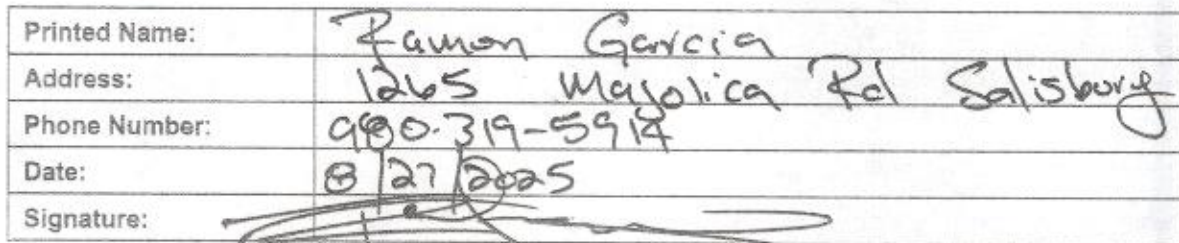 Printed Name: Ramon Garcia
Address: 1265 Majolica Rd Salisbury
Phone Number: 980-319-5914
Date: 8/27/2025
Signature: